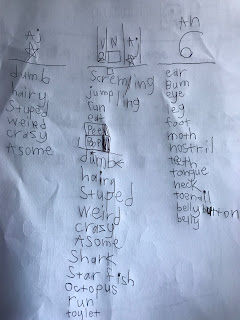 Aj
dumb
hairy
Stuped
weird
crazy
Asome
V N Aj
Screming
jumpling
Fan
eat
Peet
dumb
hairy
Stuped
weird
crazy
Asome
Shark
Star fish
octopus
run
toylet
Ah
6
ear
Bum
eye
leg
foot
moth
nostril
teeth
tongue
neck
toenail
belly button
belly